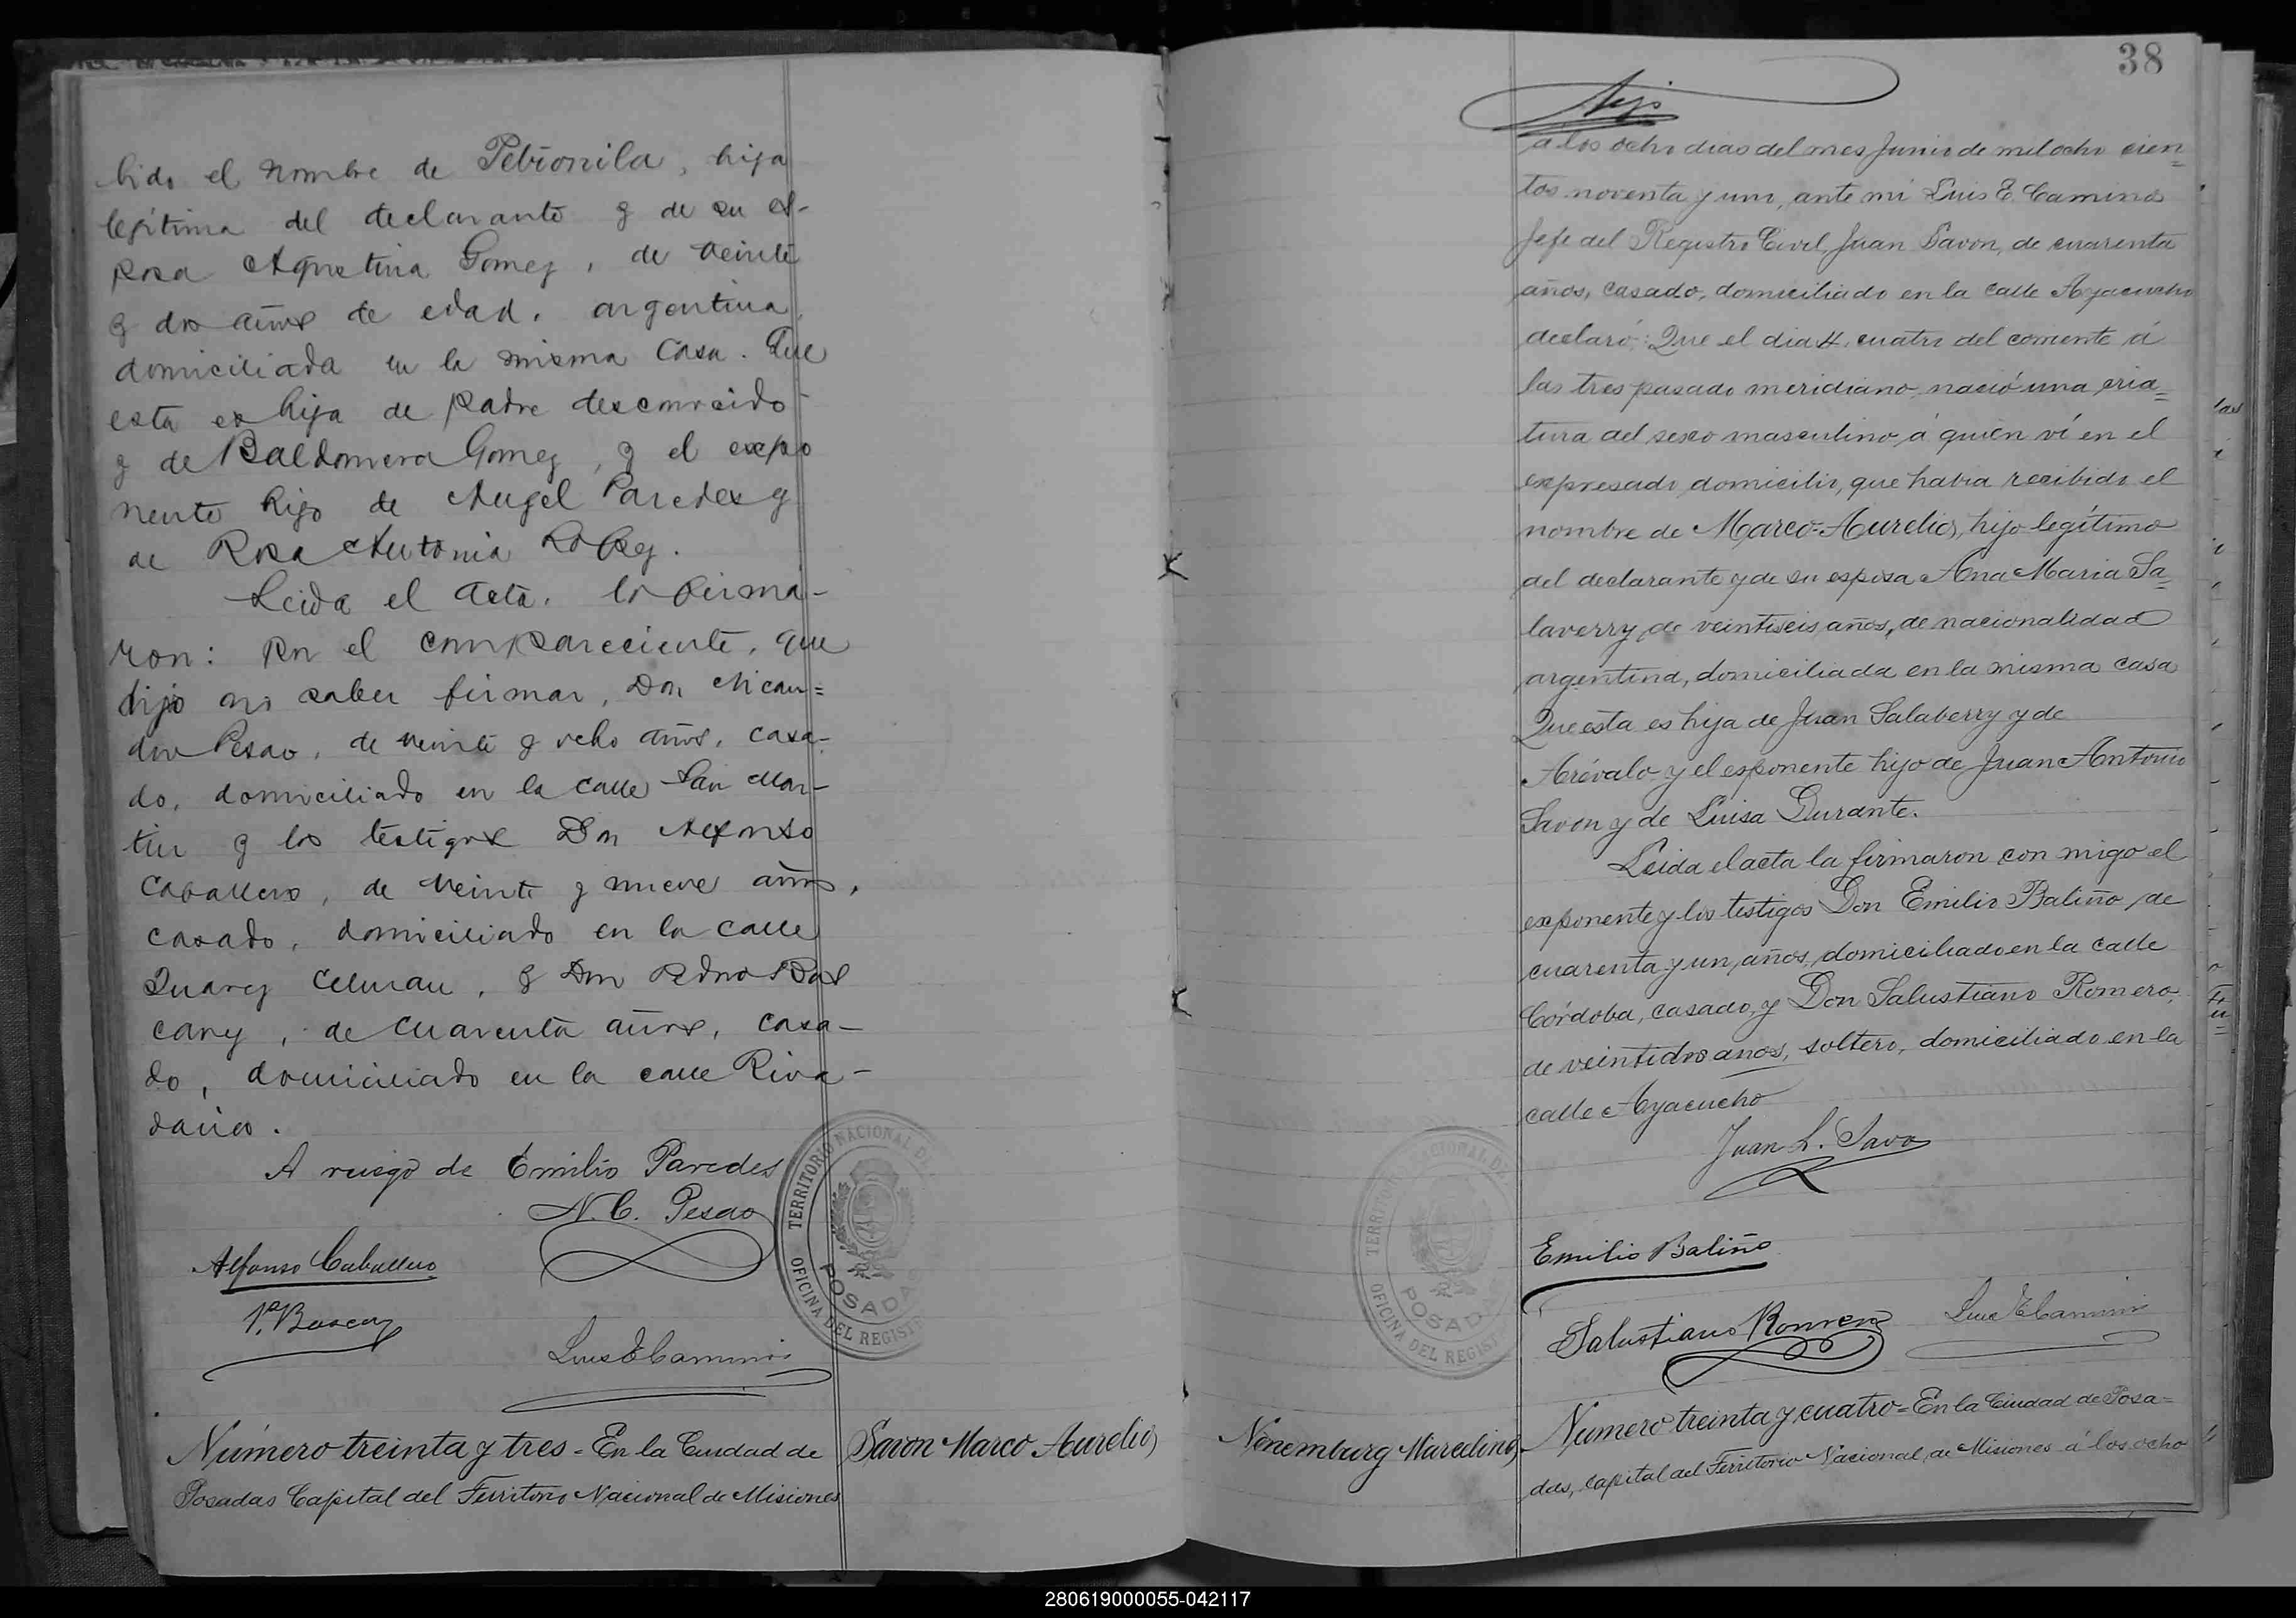 bido el nombre de Petronila, hija
legítima del declarante y de su es-
posa Agustina Gomez, de veinte
y dos años de edad, argentina,
domiciliada en la misma casa. Que
esta es hija de padre desconocido
y de Baldomera Gomez, y el expo
nente hijo de Angel Paredes y
de Rosa Antonia Lopez.
Leida el acta, la firma-
ron: por el compareciente, que
dijo no saber firmar, Don Nican=
dro Pesao, de veinte y ocho años, casa-
do, domiciliado en la calle San Mar-
tin y los testigos Don Alfonso
Caballero, de veinte y nueve años,
casado, domiciliado en la calle
Juarez Celman, y Don Pedro Bus
cary, de cuarenta años, casa-
do, domiciliado en la calle Riva-
davia.
A ruego de Emilio Paredes
N. C. Pesao
Alfonso Caballero
P. Buscary
Luis E Camino
TERRITORIO NACIONAL DE
POSADAS
OFICINA DEL REGISTR
Número treinta y tres - En la Ciudad de
Posadas Capital del Territorio Nacional de Misiones
Savon Marco Aurelio
38
á los ocho dias del mes Junio de mil ocho cien=
tos noventa y uno, ante mi Luis E. Camino
Jefe del Registro Civil, Juan Savon, de cuarenta
años, casado, domiciliado en la calle Ayacucho
declaró: Que el dia 4, cuatro del corriente á
las tres pasado meridiano, nació una cria=
tura del sexo masculino, á quien ví en el
expresado domicilio, que habia recibido el
nombre de Marco-Aurelio, hijo legítimo
del declarante y de su esposa Ana Maria Sa=
laverry, de veintiseis años, de nacionalidad
argentina, domiciliada en la misma casa
Que esta es hija de Juan Salaberry y de
Arévalo y el esponente hijo de Juan Antonio
Savon y de Luisa Durante.
Leida el acta la firmaron con migo el
exponente y los testigos Don Emilio Baliño, de
cuarenta y un años, domiciliado en la calle
Córdoba, casado, y Don Salustiano Romero,
de veintidos anos, soltero, domiciliado en la
calle Ayacucho
Juan L. Savo
Emilio Baliño
Salustiano Romero
Luis E Camino
NACIONAL DE
POSADA
OFICINA DEL REGIST
Nenemburg Marcelino,
Número treinta y cuatro = En la Ciudad de Posa=
das, capital del Territorio Nacional, de Misiones á los ocho
280619000055-042117